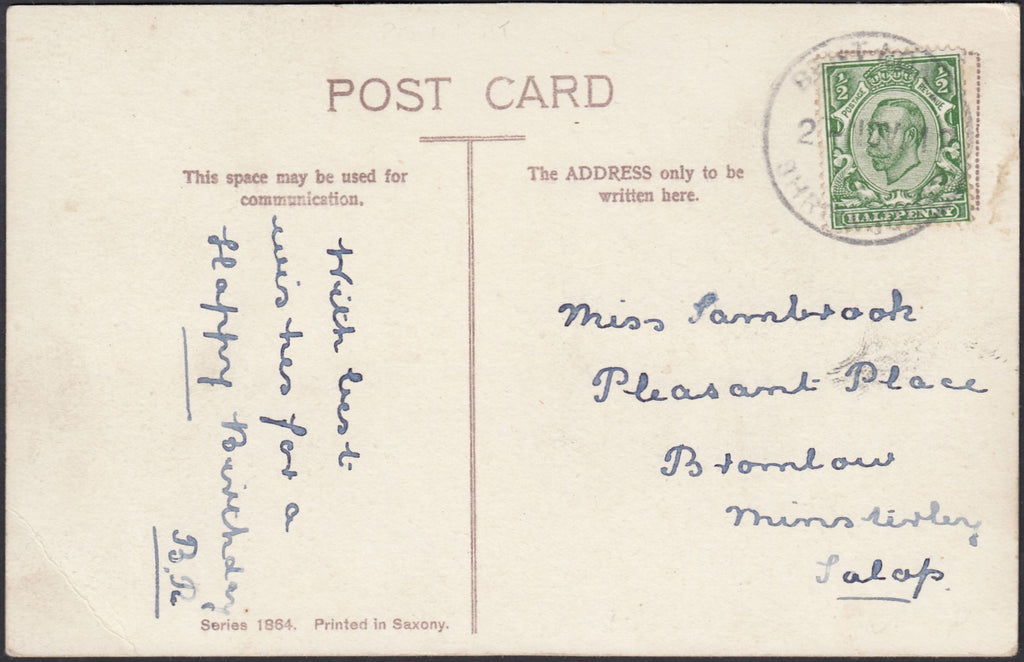 POST CARD
This space may be used for
communication.
The ADDRESS only to be
written here.
½ ½
POSTAGE REVENUE
HALFPENNY
With best
wishes for a
Happy Birthday
B.R
Miss Sambrook
Pleasant Place
Bromlow
Minsterley
Salop
Series 1864. Printed in Saxony.